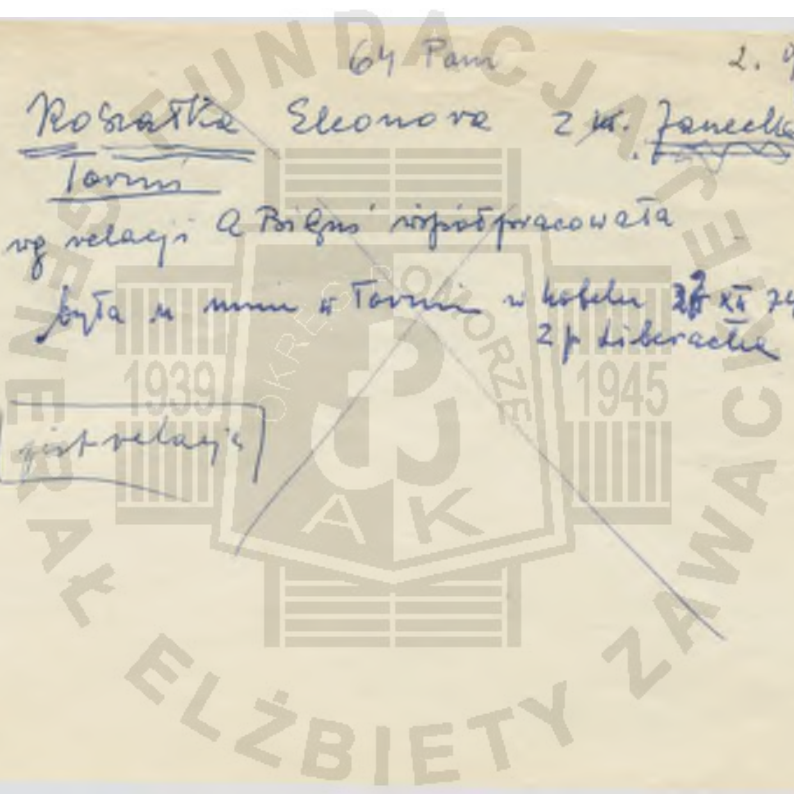 64 Pam 2.
Kobiałka Eleonora z Janecka
Toruń
wg relacji A Biguś współpracowała
była u mnie w Toruniu w hotelu XII
z p
jest relacja
FUNDACJA GENERAŁ ELŻBIETY ZAWACKIEJ
OKRĘG POMORZE
1939 1945
AK